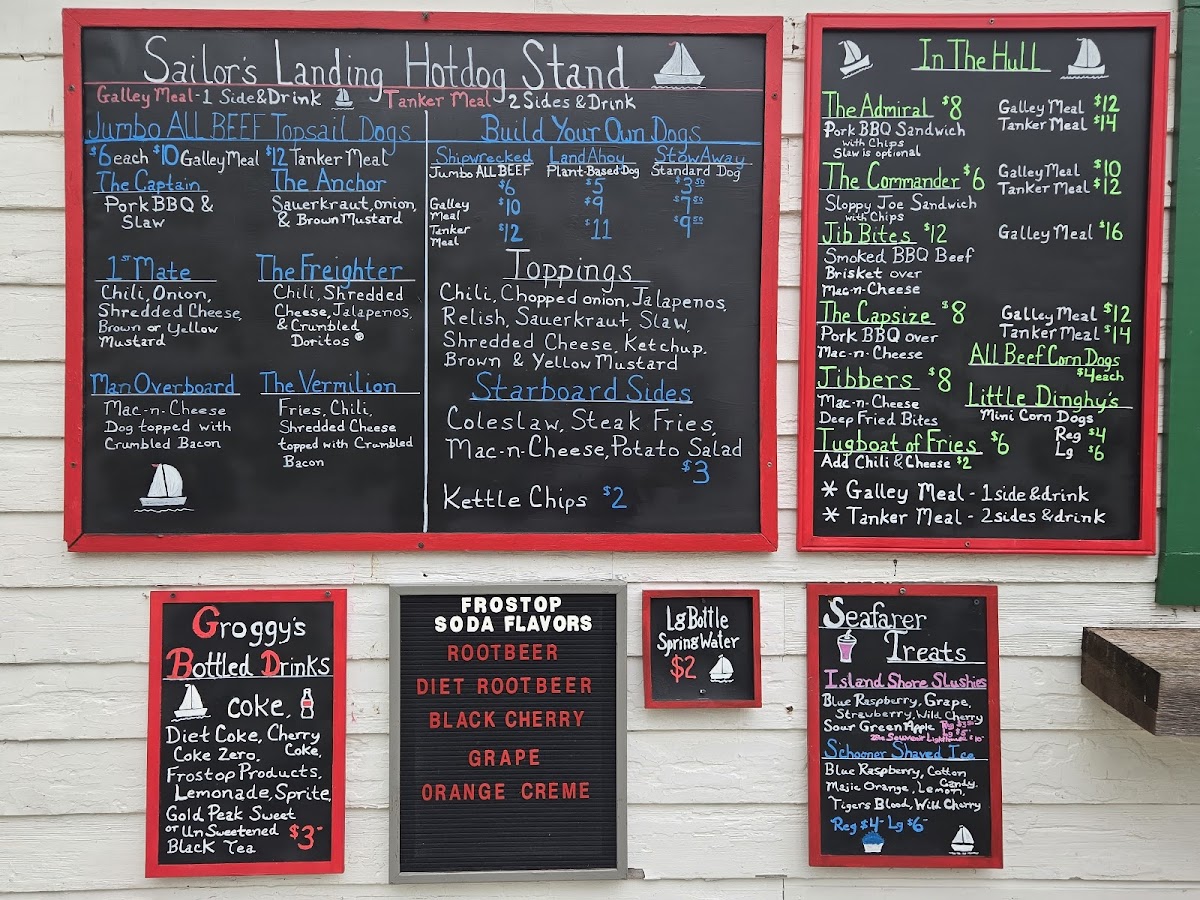 Sailor's Landing Hotdog Stand
Galley Meal-1 Side&Drink Tanker Meal-2 Sides & Drink
Jumbo ALL BEEF Topsail Dogs
$6 each $10 Galley Meal $12 Tanker Meal
The Captain
Pork BBQ &
Slaw
The Anchor
Sauerkraut, onion,
& Brown Mustard
1st Mate
Chili, Onion,
Shredded Cheese,
Brown or Yellow
Mustard
The Freighter
Chili, Shredded
Cheese, Jalapenos,
& Crumbled
Doritos ®
Man Overboard
Mac-n-Cheese
Dog topped with
Crumbled Bacon
The Vermilion
Fries, Chili,
Shredded Cheese
topped with Crumbled
Bacon
Build Your Own Dogs
Shipwrecked Land Ahoy Stow Away
Jumbo ALL BEEF Plant-Based Dog Standard Dog
$6 $5 $3.50
Galley Meal $10 $9 $7.50
Tanker Meal $12 $11 $9.50
Toppings
Chili, Chopped onion, Jalapenos,
Relish, Sauerkraut, Slaw,
Shredded Cheese, Ketchup,
Brown & Yellow Mustard
Starboard Sides
Coleslaw, Steak Fries,
Mac-n-Cheese, Potato Salad
$3
Kettle Chips $2
In The Hull
The Admiral $8
Pork BBQ Sandwich
with Chips
Slaw is optional
Galley Meal $12
Tanker Meal $14
The Commander $6
Sloppy Joe Sandwich
with Chips
Galley Meal $10
Tanker Meal $12
Jib Bites $12
Smoked BBQ Beef
Brisket over
Mac-n-Cheese
Galley Meal $16
The Capsize $8
Pork BBQ over
Mac-n-Cheese
Galley Meal $12
Tanker Meal $14
Jibbers $8
Mac-n-Cheese
Deep Fried Bites
All Beef Corn Dogs
$4 each
Little Dinghy's
Mini Corn Dogs
Reg $4
Lg $6
Tugboat of Fries $6
Add Chili & Cheese $2
* Galley Meal - 1 side & drink
* Tanker Meal - 2 sides & drink
Groggy's
Bottled Drinks
Coke,
Diet Coke, Cherry
Coke,
Coke Zero,
Frostop Products,
Lemonade, Sprite,
Gold Peak Sweet
or UnSweetened
Black Tea
$3-
FROSTOP
SODA FLAVORS
ROOTBEER
DIET ROOTBEER
BLACK CHERRY
GRAPE
ORANGE CREME
Lg Bottle
Spring Water
$2
Seafarer
Treats
Island Shore Slushies
Blue Raspberry, Grape,
Strawberry, Wild Cherry
Sour Green Apple
Lg $5
Souvenir
Schooner Shaved Ice
Blue Raspberry, Cotton
Candy,
Majic Orange, Lemon,
Tigers Blood, Wild Cherry
Reg $4- Lg $6-